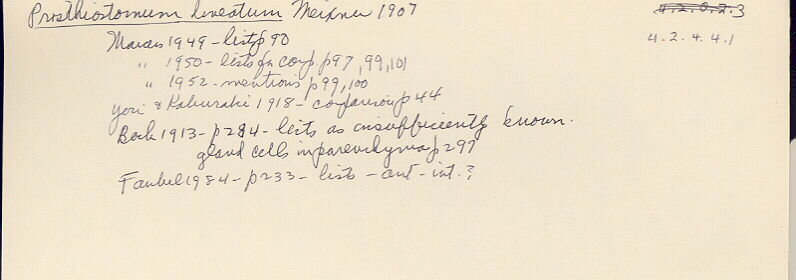 Prosthiostomum lineatum Meixner 1907
4.2.0.2.3
4.2.4.4.1
Marcus 1949 - lists p 90
" 1950 - lists for comp. p97, 99, 101
" 1952 - mentions p99, 100
Yeri & Kaburaki 1918 - comparison p 44
Bock 1913 - p284 - lists as insufficiently known.
gland cells in parenchyma p297
Faubel 1984 - p233 - lists - ant - int.?